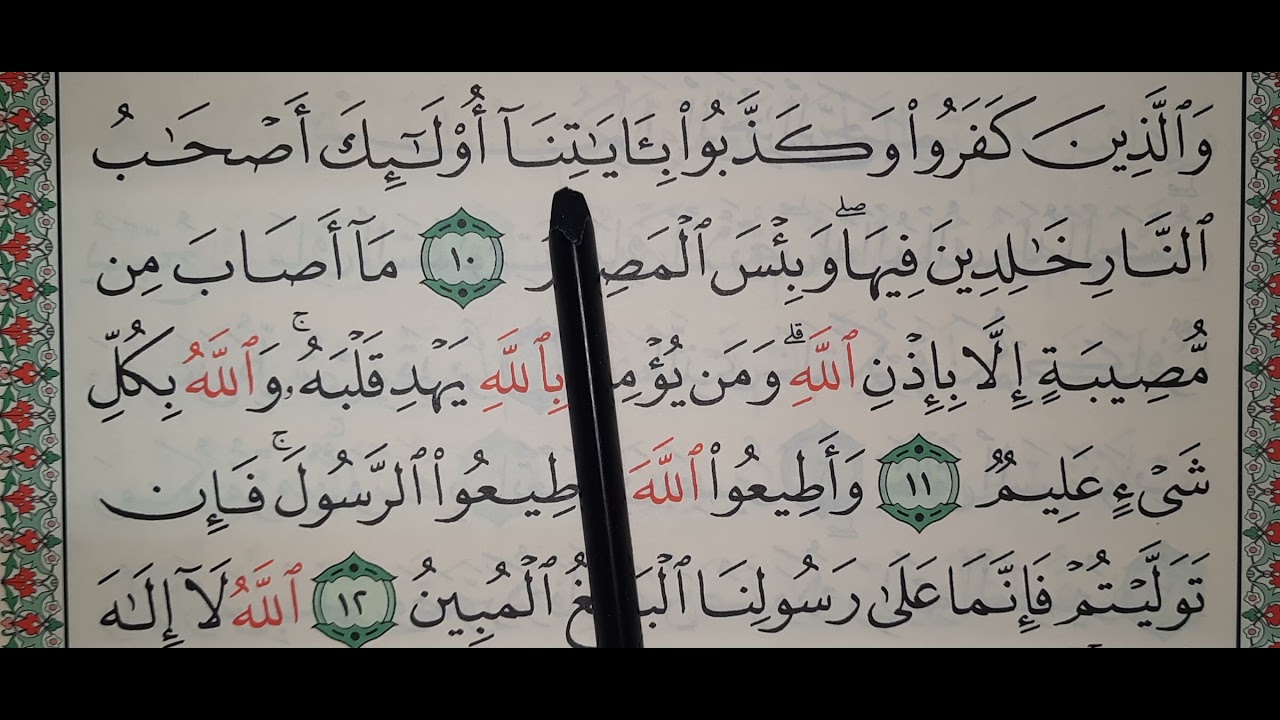 وَٱلَّذِينَ كَفَرُوا۟ وَكَذَّبُوا۟ بِـَٔايَـٰتِنَآ أُو۟لَـٰٓئِكَ أَصْحَـٰبُ
ٱلنَّارِ خَـٰلِدِينَ فِيهَا ۖ وَبِئْسَ ٱلْمَصِيرُ ١٠ مَآ أَصَابَ مِن
مُّصِيبَةٍ إِلَّا بِإِذْنِ ٱللَّهِ ۗ وَمَن يُؤْمِنۢ بِٱللَّهِ يَهْدِ قَلْبَهُۥ ۚ وَٱللَّهُ بِكُلِّ
شَىْءٍ عَلِيمٌ ١١ وَأَطِيعُوا۟ ٱللَّهَ وَأَطِيعُوا۟ ٱلرَّسُولَ ۚ فَإِن
تَوَلَّيْتُمْ فَإِنَّمَا عَلَىٰ رَسُولِنَا ٱلْبَلَـٰغُ ٱلْمُبِينُ ١٢ ٱللَّهُ لَآ إِلَـٰهَ